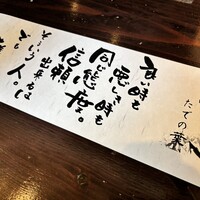 良い時も
悪い時も
同じ態度。
信頼
出来るのは
そういう人。
たての葉